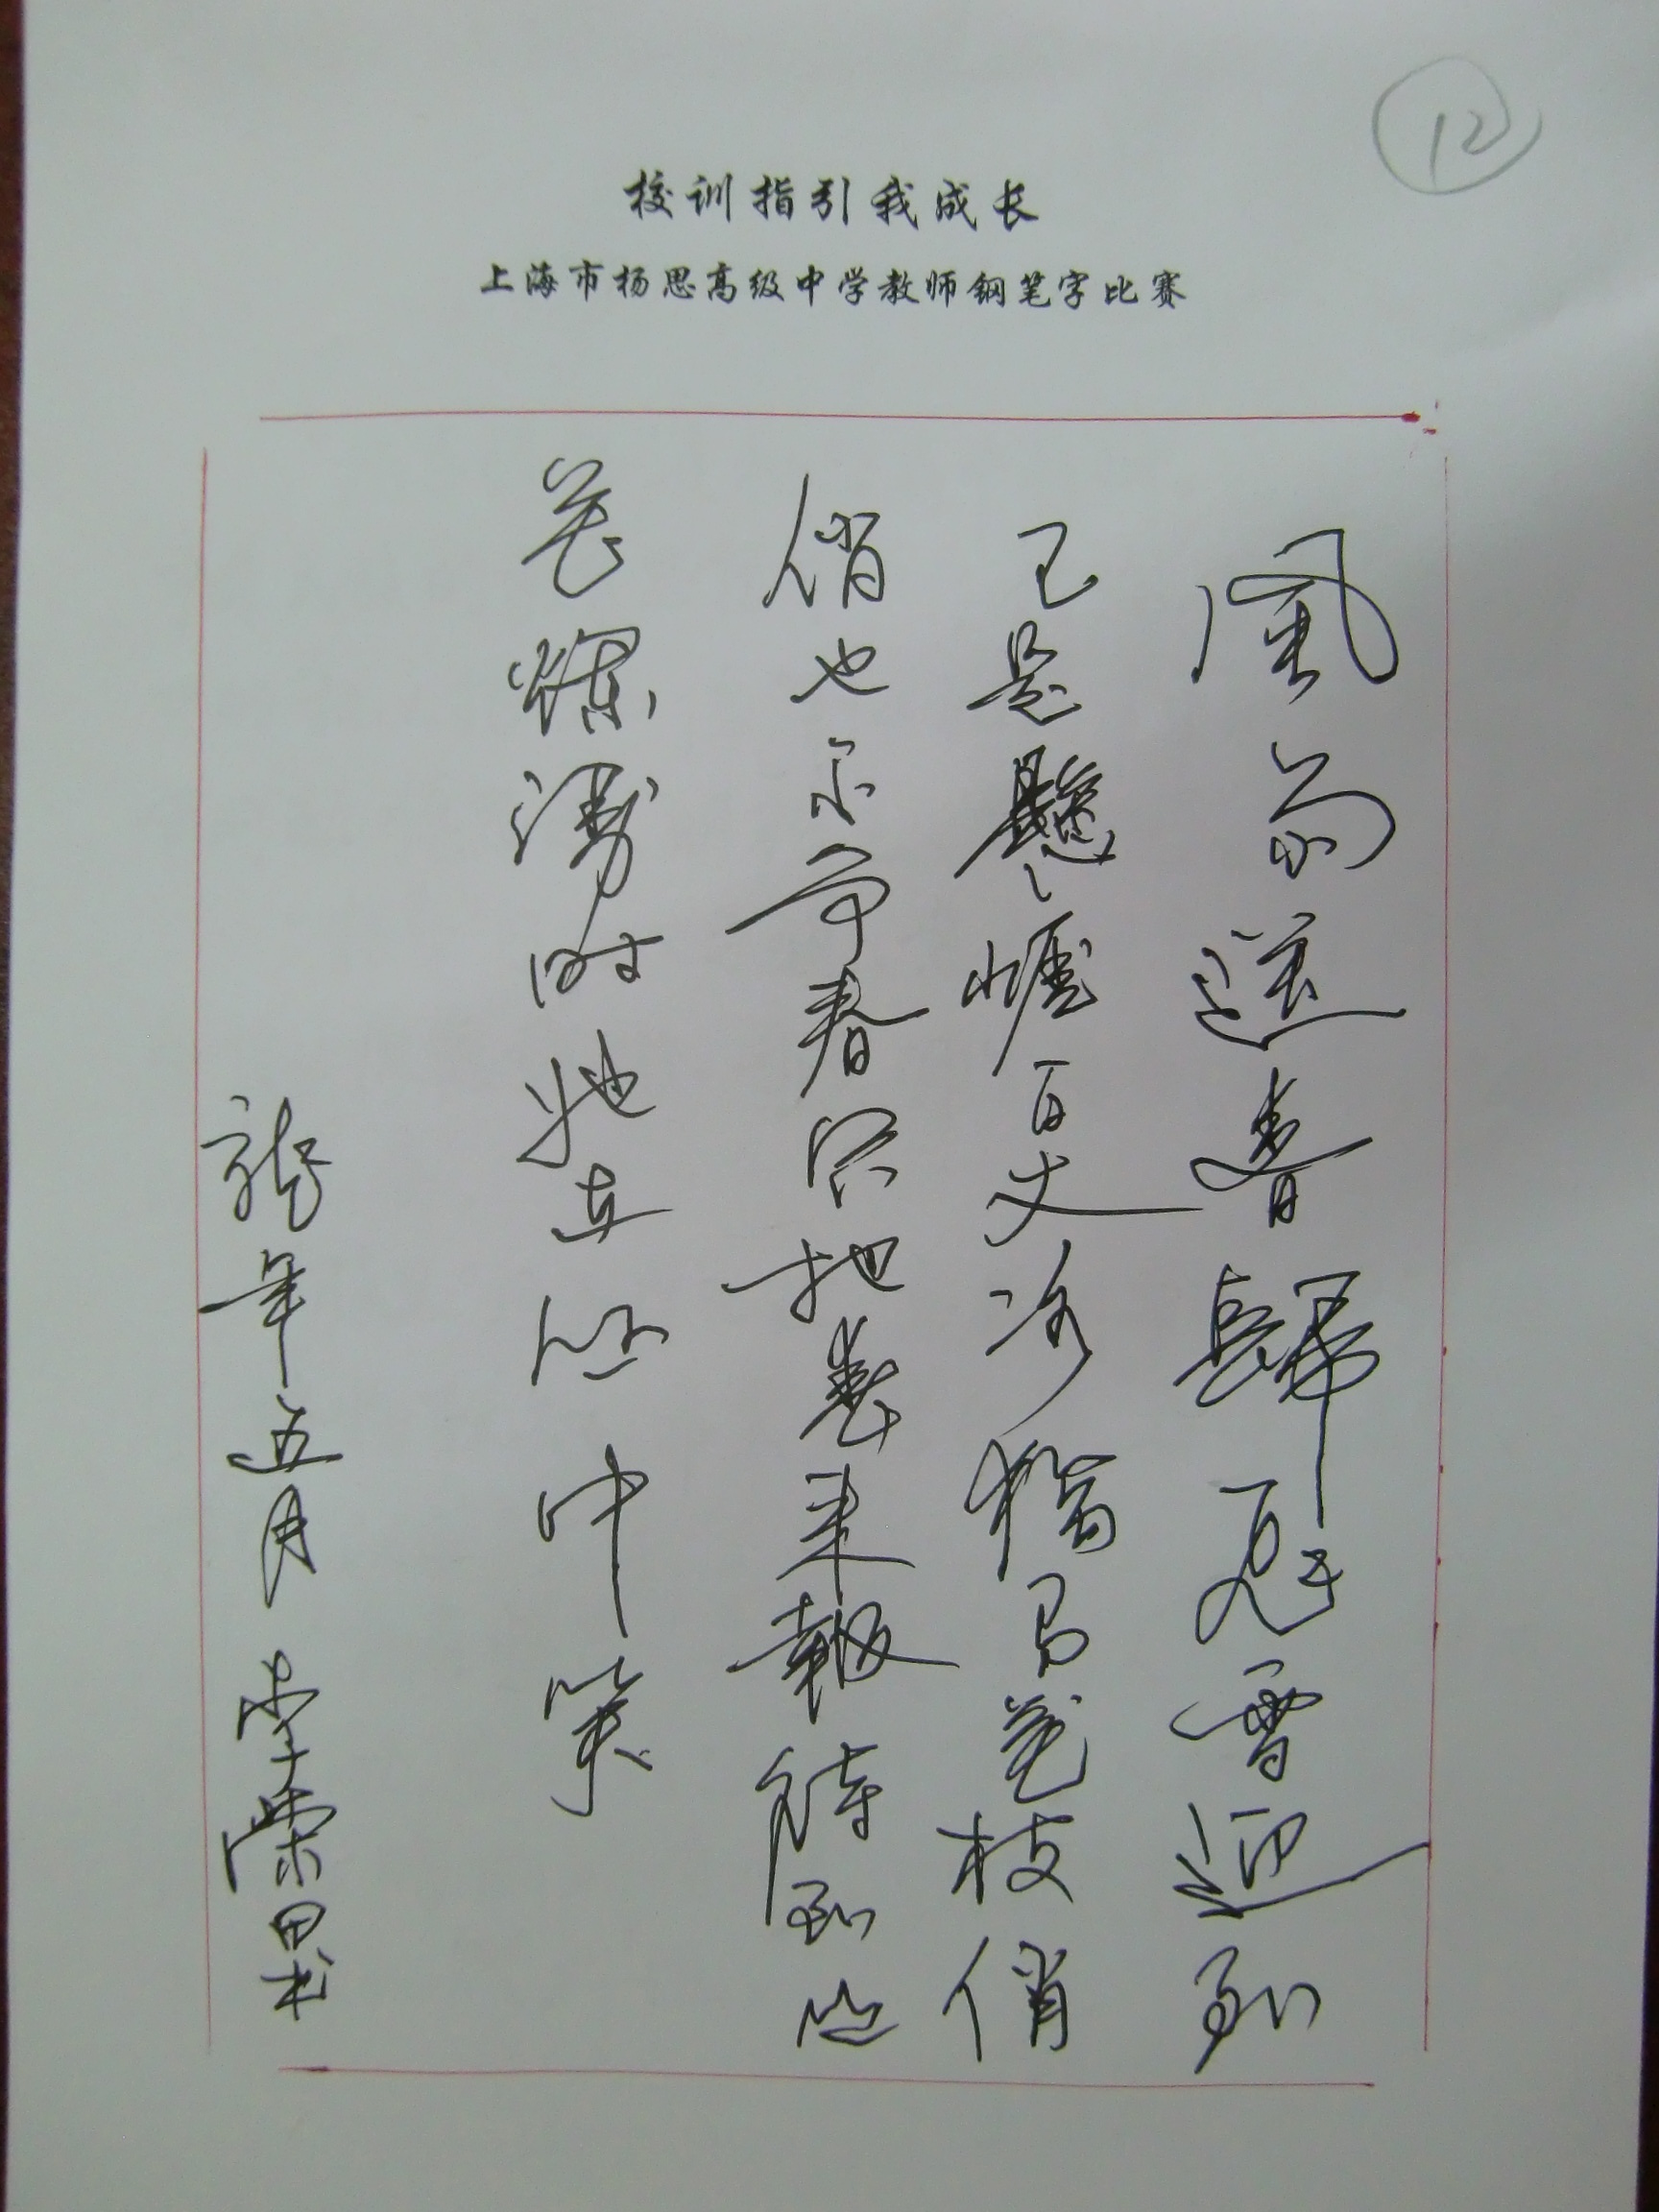 12
校训指引我成长
上海市杨思高级中学教师钢笔字比赛
風雨送春歸飛雪迎到
已是懸崖百丈冰猶有花枝俏
俏也不争春只把春来報待到山
花爛漫时她在丛中笑
龍年五月 李榮